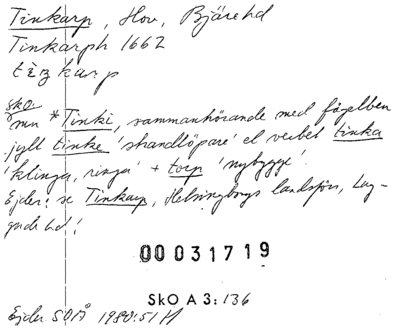 Tinkarp, Hov, Bjärehd
Tinkarph 1662
tèŋkarp
sko
mn *Tinki, sammanhörande med fågelben.
jyllt tinke 'strandlöpare' el verbet tinka
'klinga, ringa' + torp 'nybygge'.
Ejder: se Tinkarp, Helsingborgs landsförs, Lug-
gude hd!
00031719
SkO A 3: 136
Ejder SOÅ 1980:51 ff